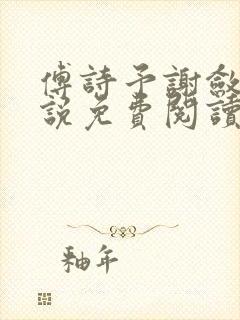 傅詩予謝斂
說免費閱讀
釉年